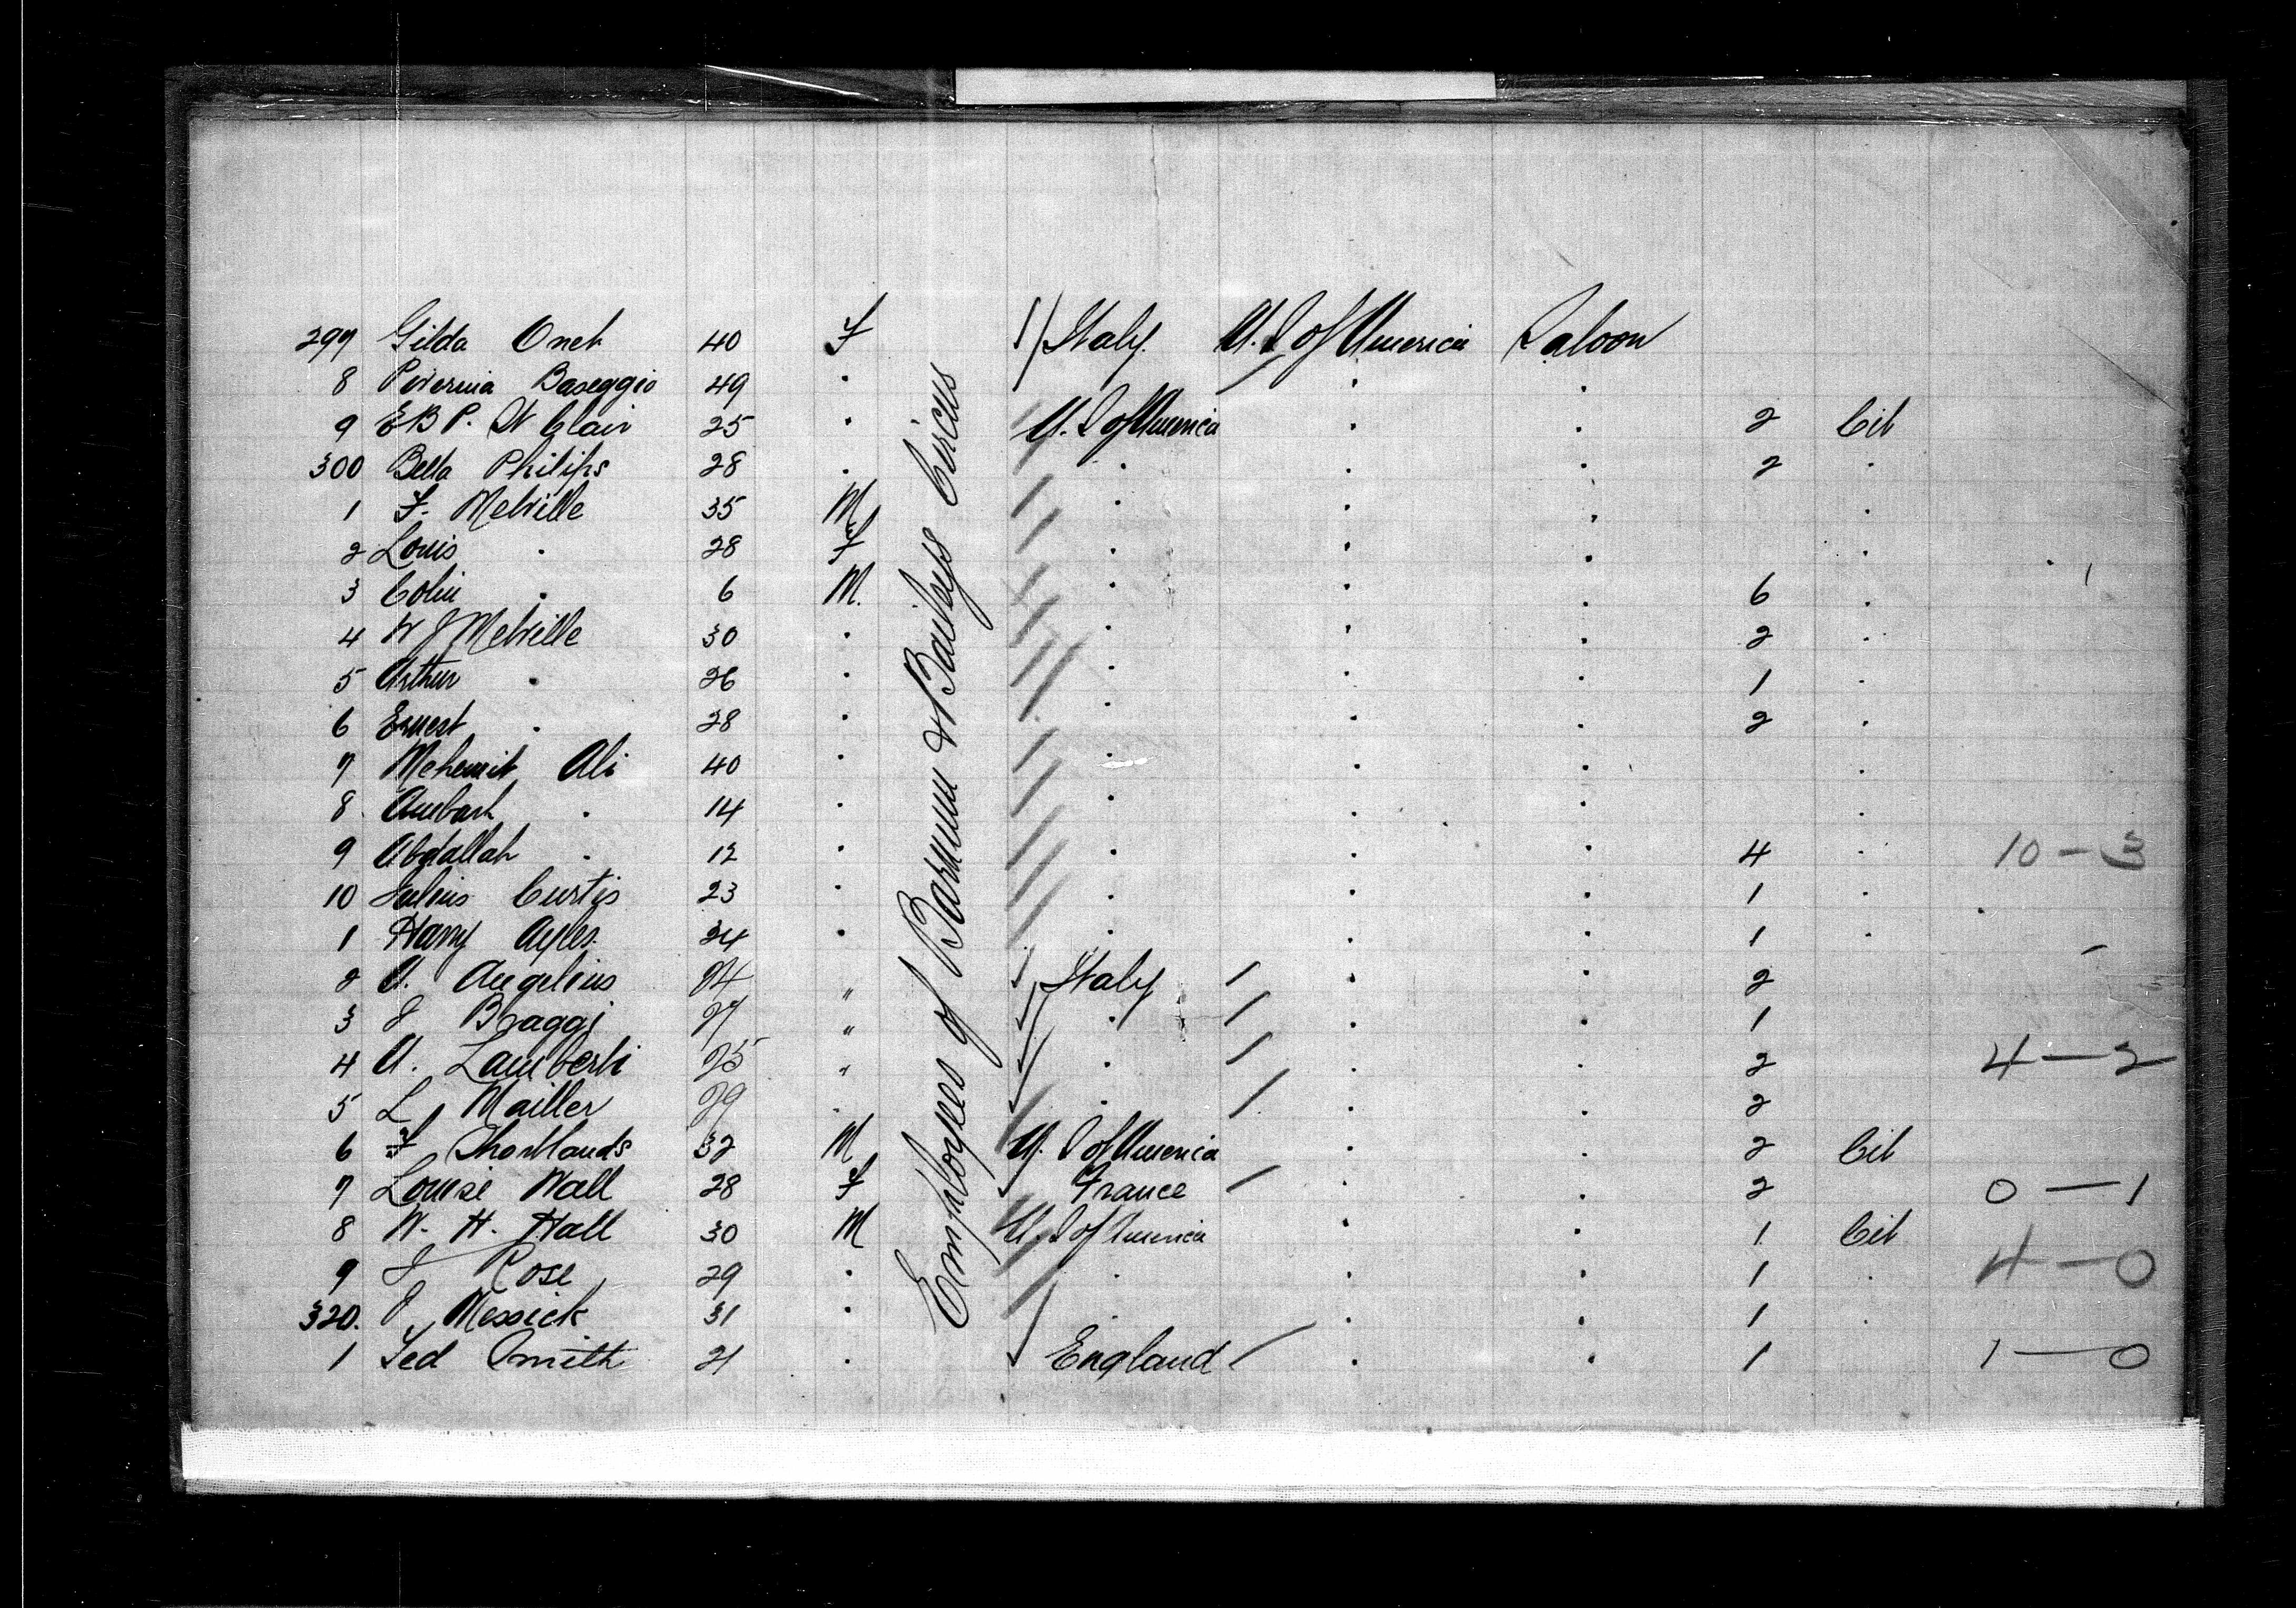 297 Gilda Onet 40 F Italy U.S of America Saloon
8 Baseggio 49 "
9 E B P. St Clair 25 " U.S of America " " 2 Cit
300 Bella Philips 28 " " " " 2 "
1 F. Melville 35 M " " " "
2 Louis " 28 F " " " "
3 Colin " 6 M. " " " 6 "
4 W J Melville 30 " " " " 2 "
5 Arthur " 26 " " " " 1 "
6 Ernest " 28 " " " " 2 "
7 Mehemit Ali 40 " " " " "
8 Ambark " 14 " " " " "
9 Abdallah " 12 " " " " 4 " 10 – 3
10 Julius Curtis 23 " " " " 1 "
1 Harry Ayles 24 " " " " 1 "
2 A. Angelius 24 " Italy " " 2
3 J Braggi 27 " " " " 1
4 A. Lamberti 25 " " " " 2 4 – 2
5 L Mailler 29 " " " " 2
6 F Shortlands 32 M U.S of America " " 2 Cit
7 Louise Wall 28 F France " " 2 0 – 1
8 W. H. Hall 30 M U.S of America " " 1 Cit
9 J Rose 29 " " " " 1 " 4 – 0
320. J Messick 31 " " " " 1 "
1 Ted Smith 21 " England " " 1 1 – 0
Employees of Barnum & Baileys Circus